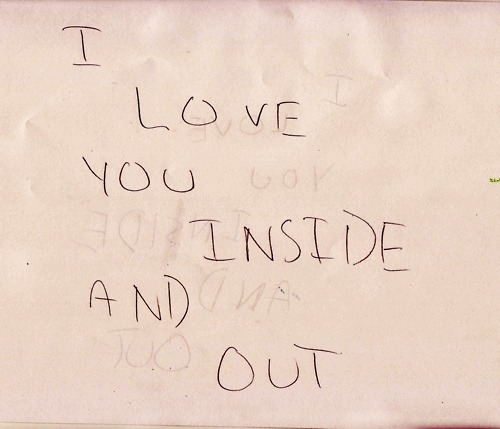 I
LOVE
YOU
INSIDE
AND
OUT